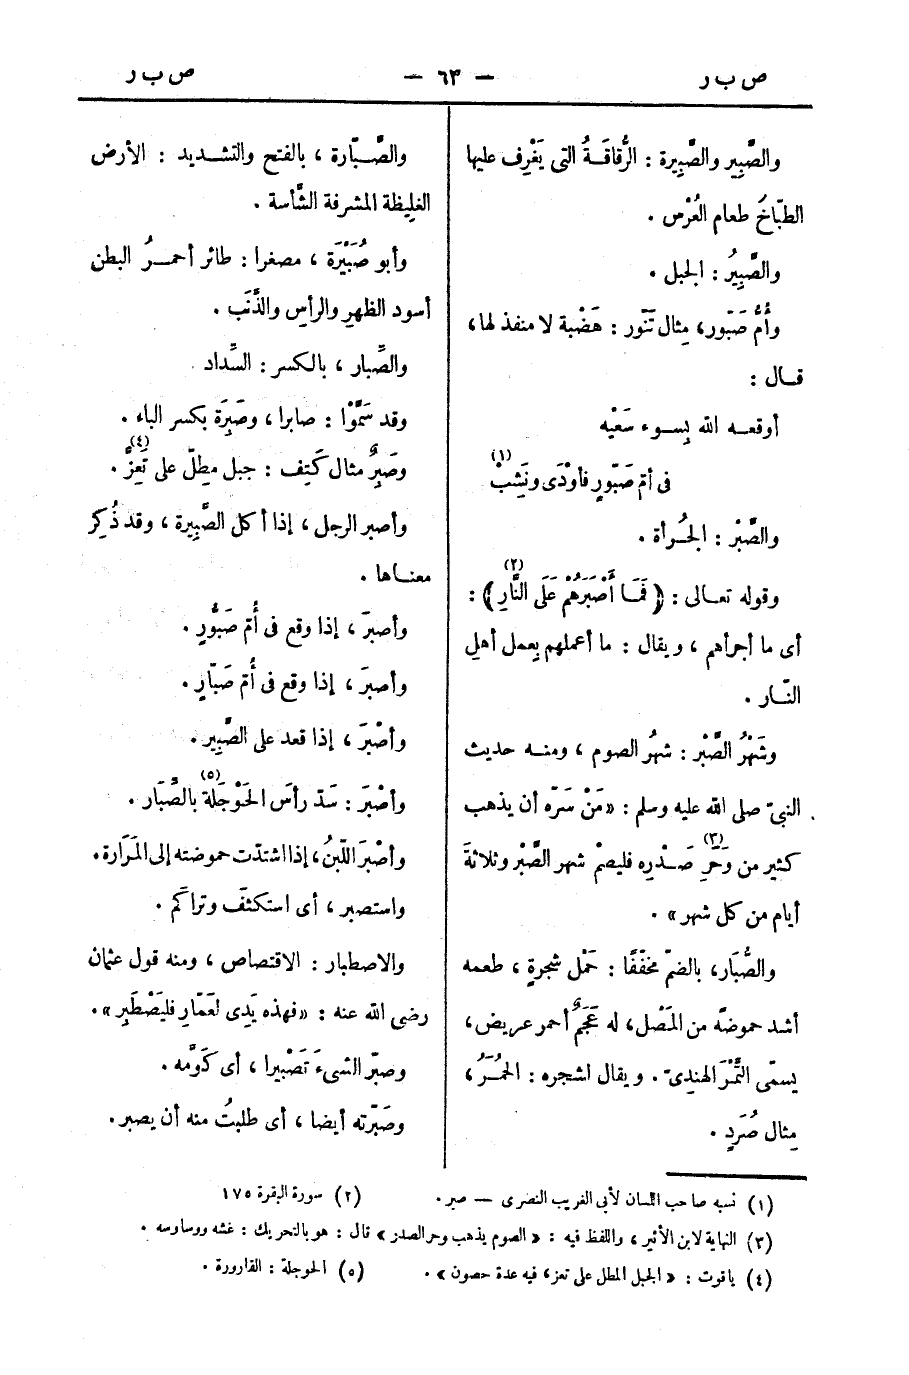 ص ب ر — ٦٣ — ص ب ر
والصَّبِير والصَّبِيرة : الرُّقاقَةُ التى يَغْرِف عليها
الطبّاخُ طعام العُرْس .
والصَّبِيرُ : الجبل .
وأُمُّ صَبّور، مِثال تَنّور : هَضْبة لا منفذ لها،
قال :
أوقعه الله بِسوء سَعْيِه
فى أمّ صَبّورٍ فأوْدَى ونَشِبْ (١)
والصَّبْر : الجُرأة .
وقوله تعالى : ﴿ فَمَا أَصْبَرَهُمْ عَلَى النَّارِ ﴾ (٢) :
أى ما أجرأهم ، ويقال : ما أعملهم بِعمل أهلِ
النّار .
وشَهْرُ الصَّبْر : شهرُ الصوم ، ومنه حديث
النبىّ صلى الله عليه وسلم : «مَنْ سَرّه أن يذهب
كثير من وَحَرِ (٣) صَدْرِه فليصمْ شهر الصَّبْر وثلاثةَ
أيام من كل شهر» .
والصُّبَار، بالضمّ مخفّفًا : حَمْل شجرةٍ ، طعمه
أشد حموضةً من المَصْل، له عَجَمٌ أحمر عريض،
يسمّى التَّمْرَ الهندىّ . ويقال لشجره : الحُمَرُ ،
مِثال صُرَدٍ .
والصَّبّارة ، بالفتح والتشديد : الأرض
الغليظة المشرفة الشَّأسة .
وأبو صُبَيْرَة ، مصغرا : طائر أحمرُ البطن
أسود الظهرِ والرأسِ والذَّنَب .
والصِّبار ، بالكسر : السِّداد
وقد سَمَّوْا : صابرا ، وصَبِرَة بكسر الباء .
وصَبِرٌ مثال كَتِف : جبل مطلّ على تَعِزّ (٤) .
وأصبر الرجل ، إذا أكل الصَّبِيرة ، وقد ذُكِر
معناها .
وأصبرَ ، إذا وقع فى أُمّ صَبُّورٍ .
وأصبرَ ، إذا وقع فى أُمّ صَبّارٍ .
وأصْبرَ ، إذا قعد على الصَّبِير .
وأصْبَرَ : سَدّ رأسَ الحَوْجَلَة (٥) بالصَّبَار .
وأصْبَرَ اللّبَنُ ، إذا اشتدّت حموضته إلى المَرَارة .
واستصبر ، أى استكثفَ وتراكَم .
والاصطبار : الاقتصاص ، ومنه قول عثمان
رضى الله عنه : «فهذه يَدِى لعَمّارٍ فليَصْطَبِر» .
وصبّر الشىءَ تَصْبِيرا ، أى كَوّمَه .
وصَبّرته أيضا ، أى طلبتُ منه أن يصبر .
(١) نسبه صاحب اللسان لأبى الغريب النصرى — صبر . (٢) سورة البقرة ١٧٥
(٣) النهاية لابن الأثير ، واللفظ فيه : « الصوم يذهب وحر الصدر » قال : هو بالتحريك : غشه ووساوسه .
(٤) ياقوت : « الجبل المطل على تعز، فيه عدة حصون » . (٥) الحوجلة : القارورة .